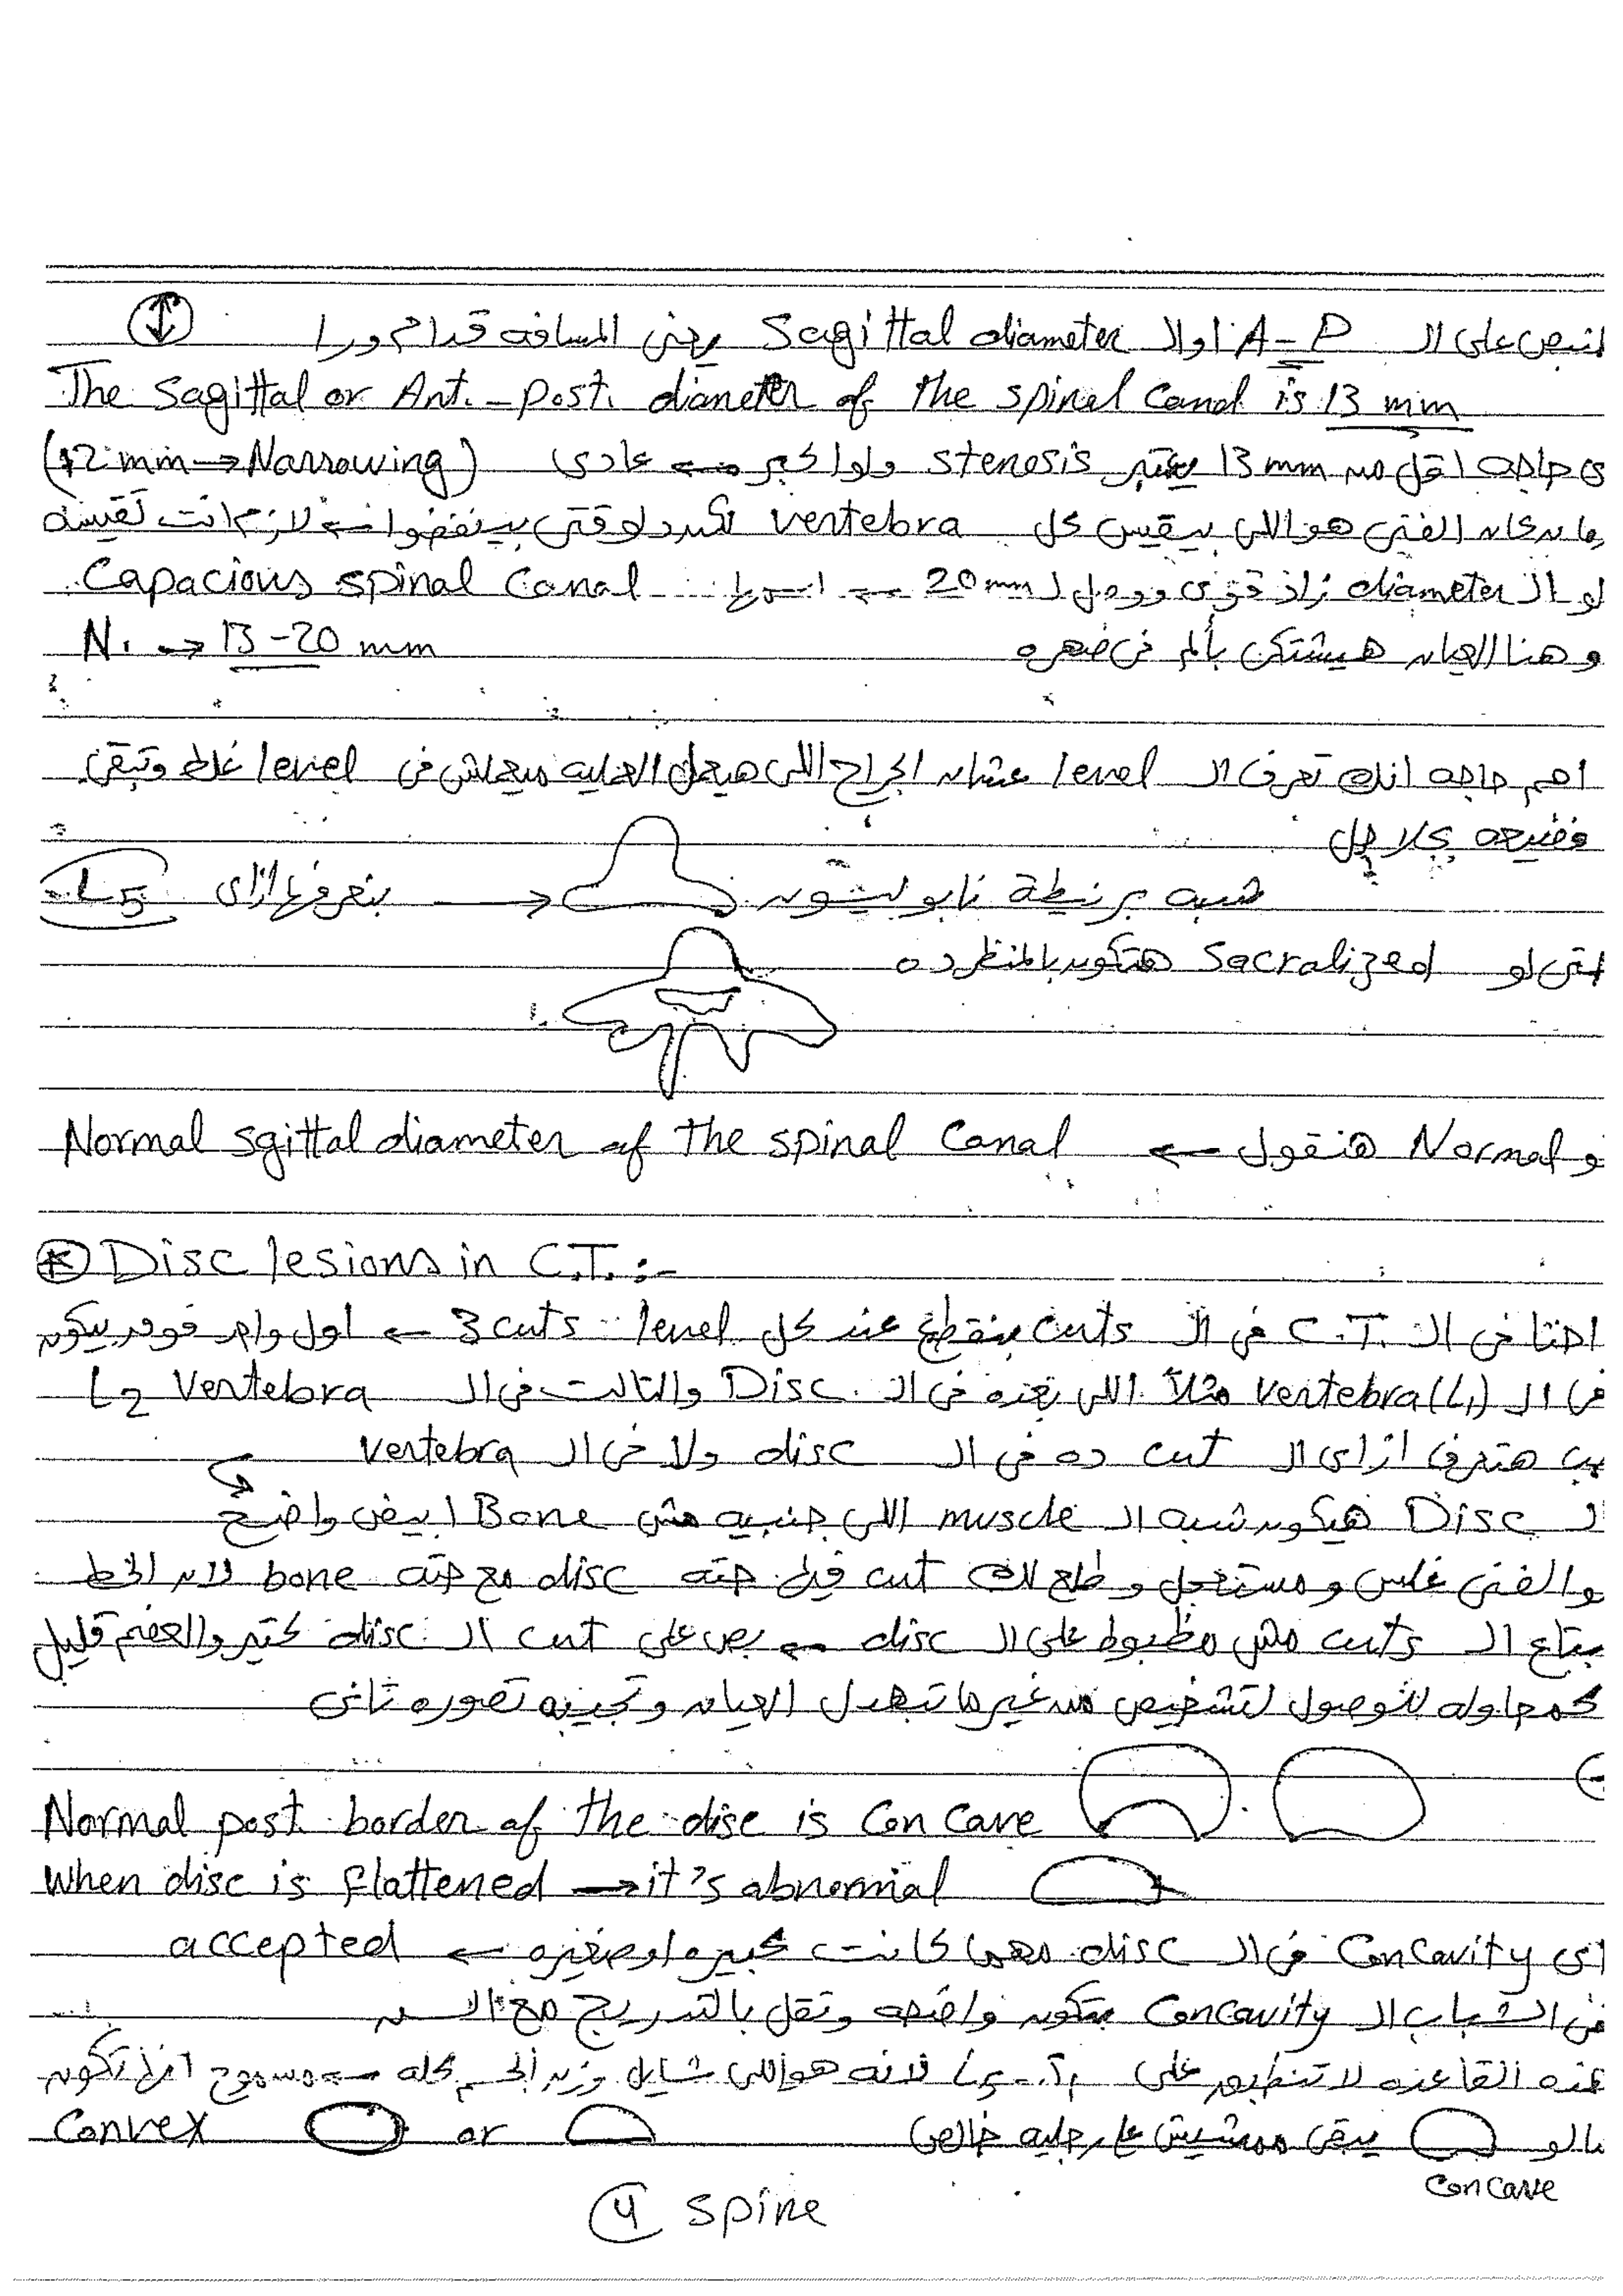 لنبص على ال A-P او ال Sagittal diameter يعنى المسافه قدام ورا
The Sagittal or Ant.-post. diameter of the spinal Canal is 13 mm
ى حاجه اقل من 13 mm يعتبر stenosis ولو اكبر ← عادى (12 mm → Narrowing)
ما بدكانه الفنى هو اللى بيقيس كل vertebra لكن دلوقتى بينفضوا ← لازم انت تقيسه
لو ال diameter زاد قوى ووصل ل 20 mm ← اسمها Capacious spinal Canal
وهنا العيان هيشتكى بألم فى ضهره N. → 13-20 mm
اهم حاجه انك تعرف ال level عشان الجراح اللى هيعمل العمليه ميعملش فى level غلط وتبقى
فضيحه بجلاجل
L5 بنعرفها ازاى → شبه برنيطة نابوليون
حتى لو Sacralized هتكون بالمنظر ده
و Normal هنقول ← Normal sgittal diameter of the spinal Canal
* Disc lesions in C.T. :-
احنا فى ال C.T. فى ال cuts بنقطع عند كل level 3 cuts ← اول واحد فوق بيكون
فى ال vertebra (L1) مثلاً اللى بعده فى ال Disc والتالت فى ال L2 Vertebra
طب هتعرف ازاى ال cut ده فى ال disc ولا فى ال vertebra
ال Disc هيكون شبه ال muscle اللى جنبيه مش Bone ابيض واضح
والفنى غلس ومستعجل وطلع لك cut فيه حته disc مع حته bone لان الخط
بتاع ال cuts مش مظبوط على ال disc ← بص على cut ال disc كتير والعضم قليل
كمحاوله للوصول لتشخيص من غير ما تبهدل العيان وتجيبه تصوره تانى
Normal post. border of the disc is Concave
When disc is flattened → it's abnormal
اى Concavity فى ال disc مهما كانت كبيره او صغيره ← accepted
فى الشباب ال Concavity بتكون واضحه وتقل بالتدريج مع السن
هذه القاعده لا تنطبق على لانه هو اللى شايل وزن الجسم كله ← مسموح انها تكون
Convex or يبقى مبيمشيش على رجليه خالص
Concave
4 spine